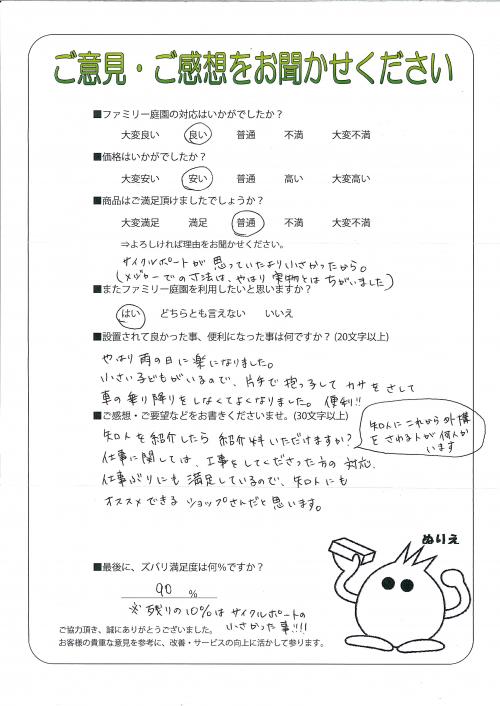 ご意見・ご感想をお聞かせください
■ファミリー庭園の対応はいかがでしたか？
大変良い　良い　普通　不満　大変不満
■価格はいかがでしたか？
大変安い　安い　普通　高い　大変高い
■商品はご満足頂けましたでしょうか？
大変満足　満足　普通　不満　大変不満
⇒よろしければ理由をお聞かせください。
サイクルポートが思っていたより小さかったから。
(メジャーでの寸法は、やはり実物とはちがいました)
■またファミリー庭園を利用したいと思いますか？
はい　どちらとも言えない　いいえ
■設置されて良かった事、便利になった事は何ですか？(20文字以上)
やはり雨の日に楽になりました。
小さい子どもがいるので、片手で抱っこして カサをさして
車の乗り降りをしなくてよくなりました。便利!!
■ご感想・ご要望などをお書きくださいませ。(30文字以上)
知人を紹介したら紹介料いただけますか？
知人にこれから外構
をされる人が何人か
います
仕事に関しては、工事をしてくださった方の対応、
仕事ぶりにも満足しているので、知人にも
オススメできるショップさんだと思います。
ぬりえ
■最後に、ズバリ満足度は何％ですか？
90 ％
※残りの10%はサイクルポートの
小さかった事!!!!
ご協力頂き、誠にありがとうございました。
お客様の貴重な意見を参考に、改善・サービスの向上に活かして参ります。